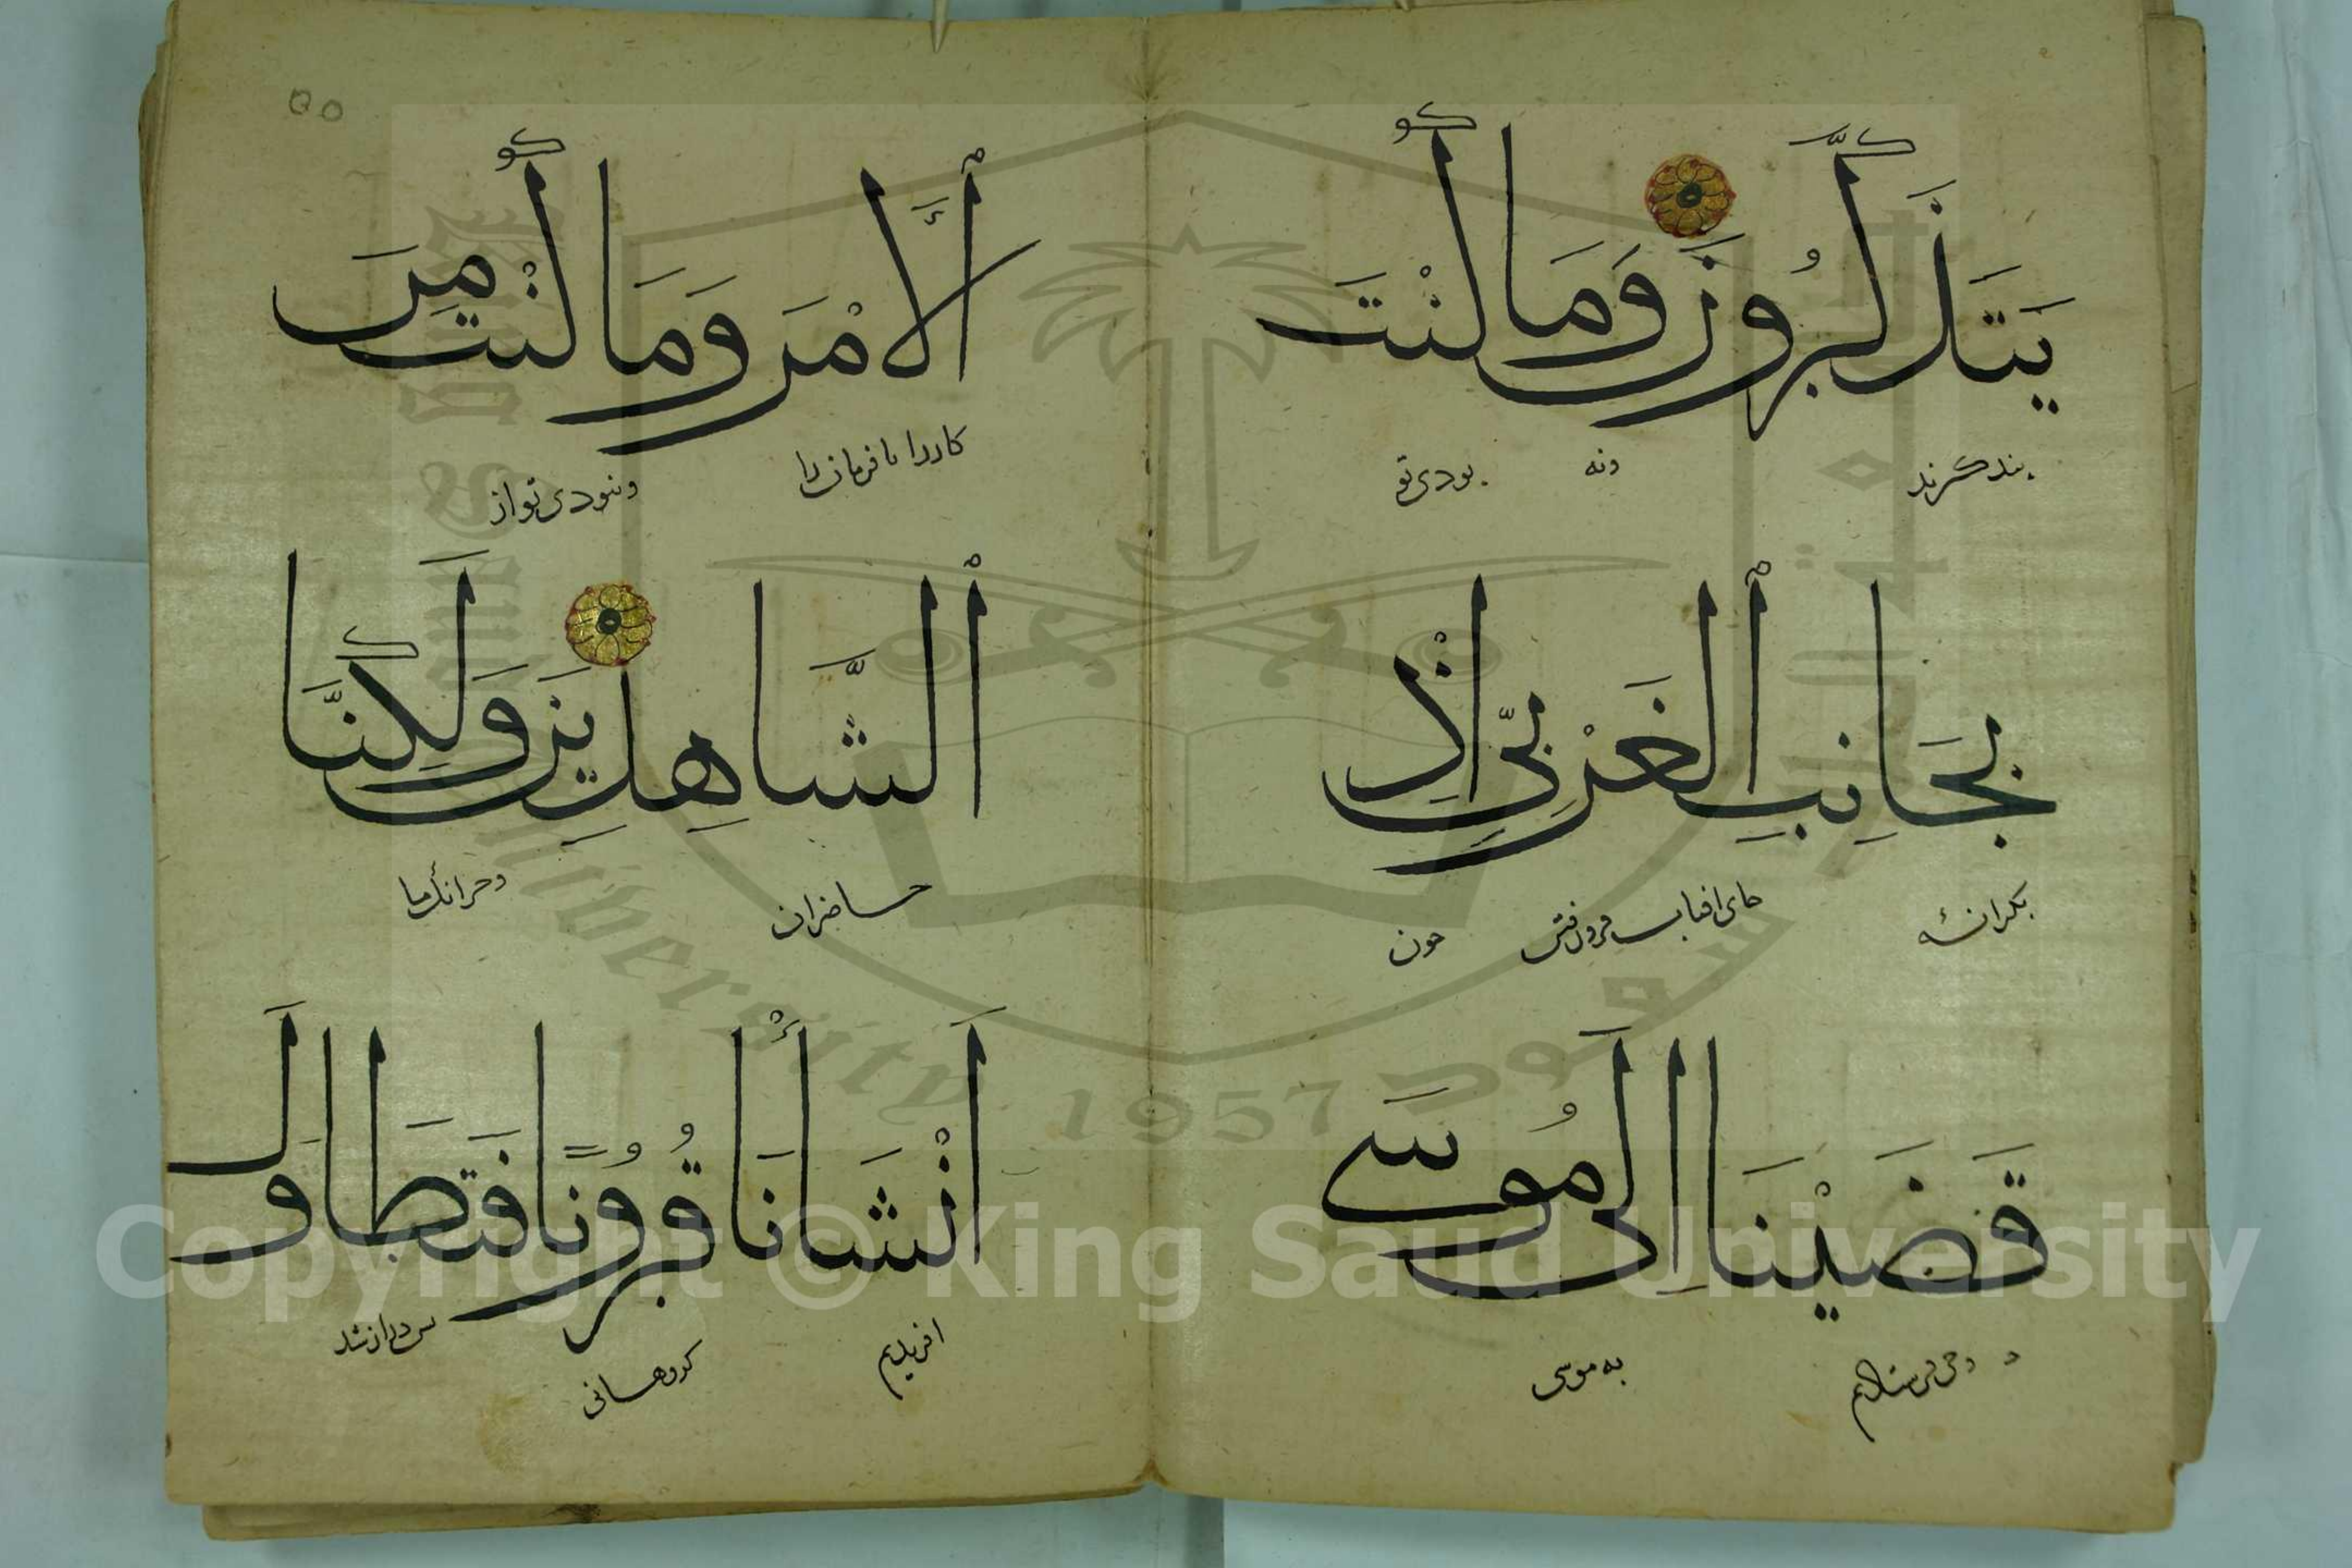 يَتَذَكَّرُونَ وَمَا كُنْتَ
بند كرند ونه بودی تو
بِجَانِبِ ٱلْغَرْبِيِّ اِذْ
بكرانهٔ جای افتاب فرو رفتن چون
قَضَيْنَا اِلَى مُوسَى
وحی فرستادیم به موسی
ٱلْاَمْرَ وَمَا كُنْتَ مِنَ
كاررا یا فرمان را ونبودی تو از
ٱلشَّاهِدِينَ وَلَكِنَّا
حاضران ما
اَنْشَأْنَا قُرُونًا فَتَطَاوَلَ
افریدیم كروهانی پس دراز شد
٥٥
Copyright © King Saud University
1957